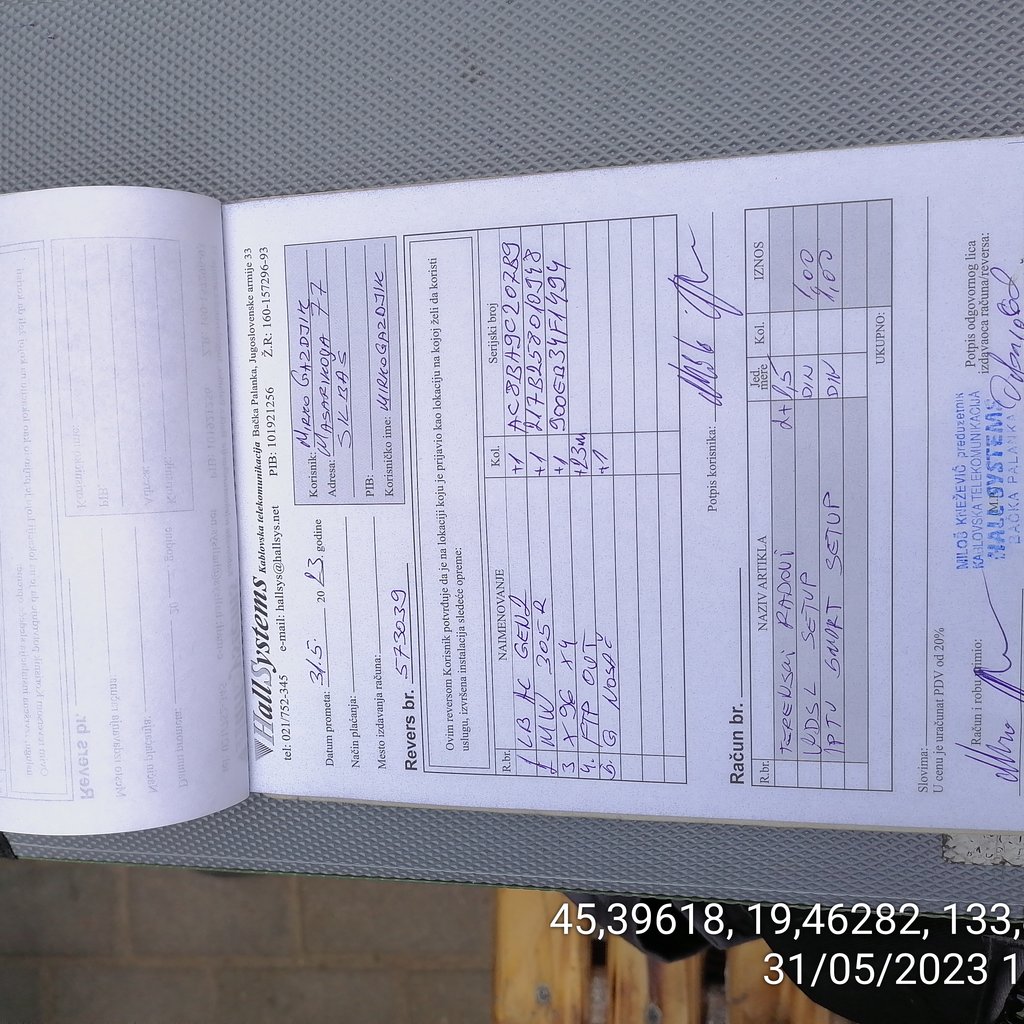 HallSystems Kablovska telekomunikacija Bačka Palanka, Jugoslovenske armije 33
tel: 021/752-345 e-mail: hallsys@hallsys.net PIB: 101921256 Ž.R: 160-157296-93
Datum prometa: 31.5. 20 23. godine
Način plaćanja:
Mesto izdavanja računa:
Korisnik: MIRKO GAZDJIK
Adresa: MASARIKOVA 77
SILBAŠ
PIB:
Korisničko ime: MIRKOGAZDJIK
Revers br. 573039
Ovim reversom Korisnik potvrđuje da je na lokaciji koju je prijavio kao lokaciju na kojoj želi da koristi
uslugu, izvršena instalacija sledeće opreme:
R.br. NAIMENOVANJE Kol. Serijski broj
1 LB AC GEN2 +1 AC8BA9C20289
2 MW 305R +1 217B258010948
3 X96 X4 +1 900EB34F1494
4. FTP OUT +23m
5. G. NOSAČ +1
Potpis korisnika:
Račun br.
R.br. NAZIV ARTIKLA Jed. mere Kol. IZNOS
TERENSKI RADOVI 2+1,5
SETUP DIN 1,00
IPTV SMART SETUP DIN 1,00
UKUPNO:
Slovima:
U cenu je uračunat PDV od 20%
Račun i robu primio:
Potpis odgovornog lica
izdavaoca računa/reversa:
MILOŠ KNEŽEVIĆ preduzetnik
KABLOVSKA TELEKOMUNIKACIJA
HALL SYSTEMS
BAČKA PALANKA
Revers br.
45,39618, 19,46282, 133,
31/05/2023 1